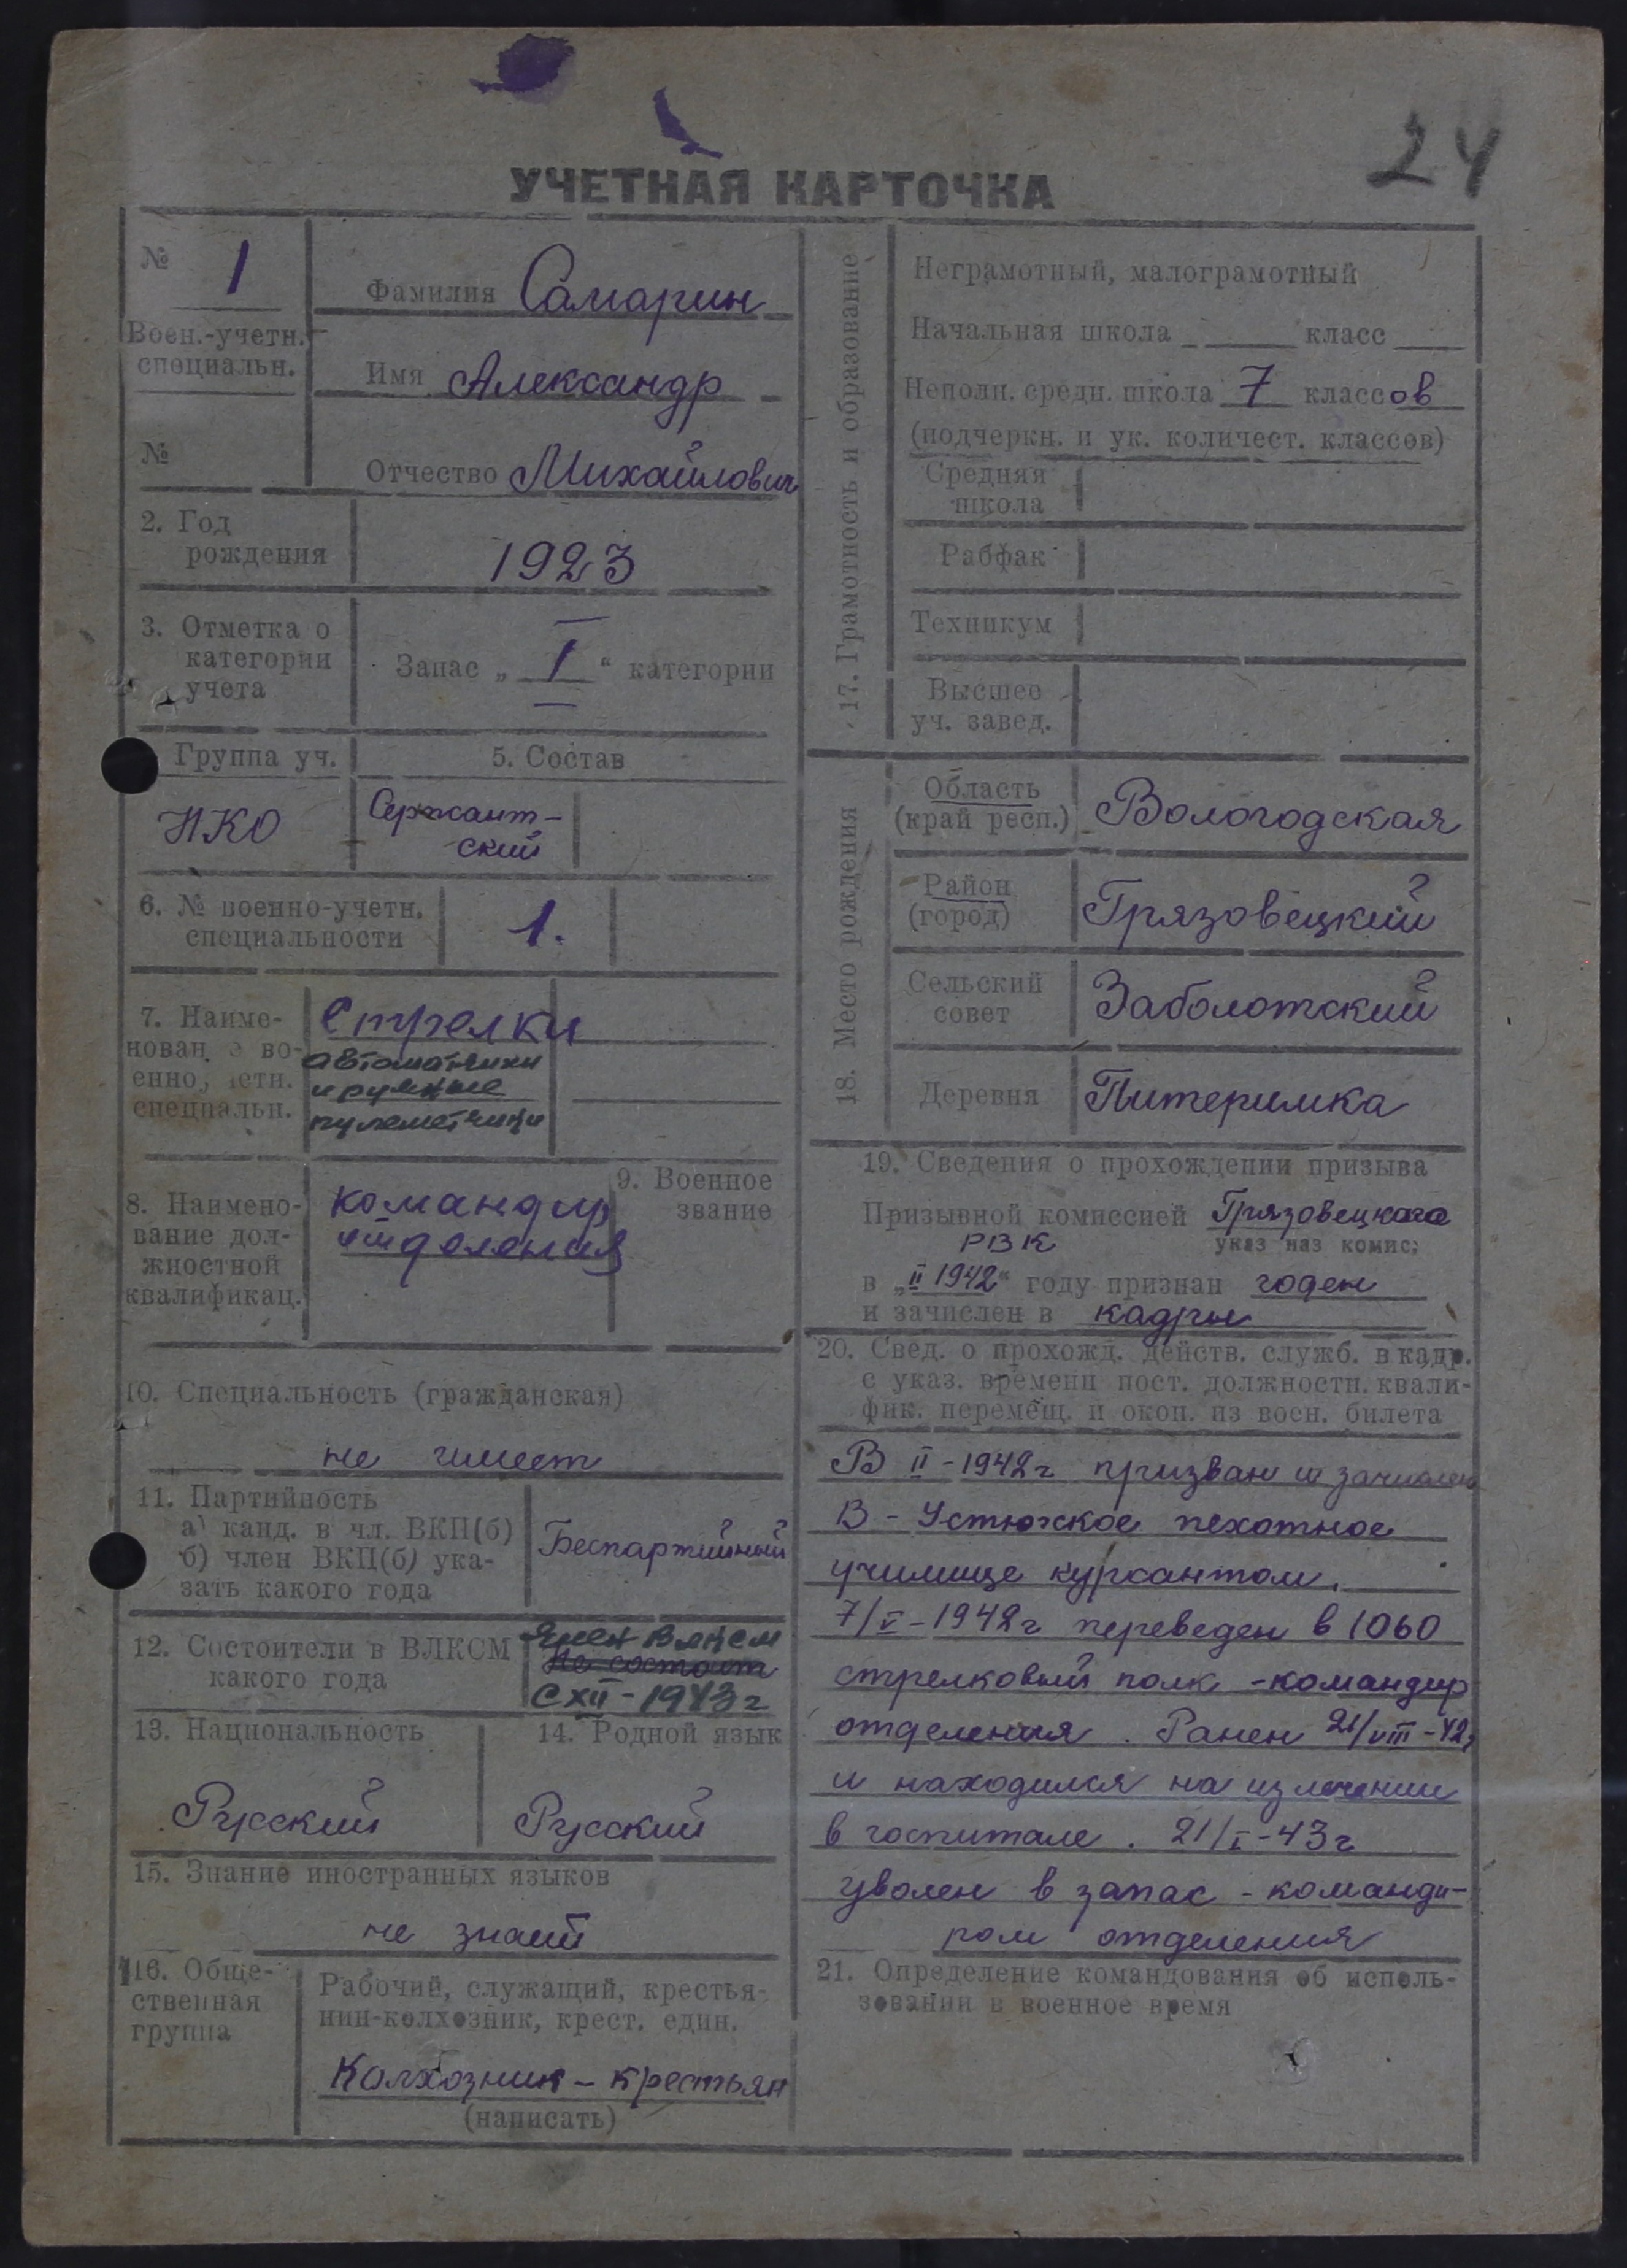 24
УЧЕТНАЯ КАРТОЧКА
№ 1
Воен.-учетн.
специальн.
№
Фамилия Самарин
Имя Александр
Отчество Михайлович
2. Год
рождения
1923
3. Отметка о
категории
учета
Запас „ I “ категории
Группа уч.
5. Состав
НКО
Сержант-
ский
6. № военно-учетн.
специальности
1.
7. Наиме-
нован е во-
енно, четн.
специальн.
Стрелки
автоматчики
и ручные
пулеметчики
8. Наимено-
вание дол-
жностной
квалификац.
командир
отделения
9. Военное
звание
10. Специальность (гражданская)
не имеет
11. Партийность
а) канд. в чл. ВКП(б)
б) член ВКП(б) ука-
зать какого года
Беспартийный
12. Состоители в ВЛКСМ
какого года
Член ВЛКСМ
Не состоит
с XII - 1943 г
13. Национальность
Русский
14. Родной язык
Русский
15. Знание иностранных языков
не знает
16. Обще-
ственная
группа
Рабочий, служащий, крестья-
нин-колхозник, крест. един.
Колхозник - крестьян
(написать)
17. Грамотность и образование
Неграмотный, малограмотный
Начальная школа класс
Неполн. средн. школа 7 классов
(подчеркн. и ук. количест. классов)
Средняя
школа
Рабфак
Техникум
Высшее
уч. завед.
18. Место рождения
Область
(край респ.)
Вологодская
Район
(город)
Грязовецкий
Сельский
совет
Заболотский
Деревня
Питеримка
19. Сведения о прохождении призыва
Призывной комиссией Грязовецкого
РВК указ наз комис:
в „II 1942“ году признан годен
и зачислен в кадры
20. Свед. о прохожд. действ. служб. в кадр.
с указ. времени пост. должностн. квали-
фик. перемещ. и окон. из воен. билета
В II - 1942 г призван и зачислен
В - Устюжское пехотное
училище курсантом.
7/V - 1942 г переведен в 1060
стрелковый полк - командир
отделения. Ранен 21/VIII - 42,
и находился на излечении
в госпитале. 21/I - 43 г
уволен в запас - команди-
ром отделения
21. Определение командования об исполь-
зовании в военное время